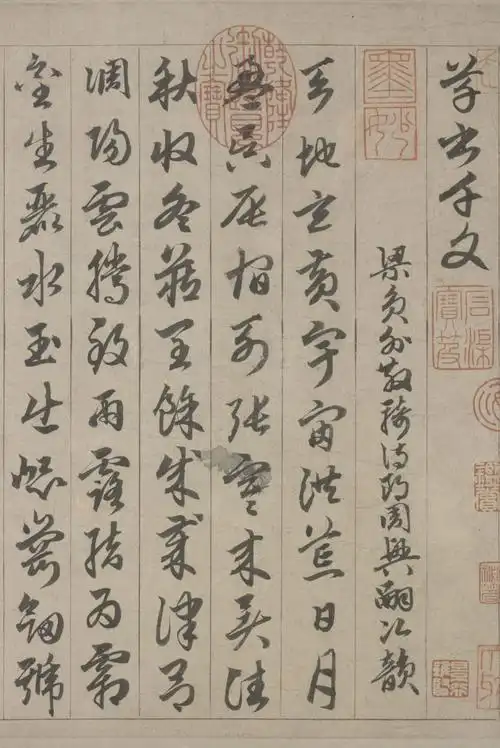 草書千文
梁員外散騎侍郎周興嗣次韻
墨妙
天地玄黃宇宙洪荒日月
盈昃辰宿列張寒來暑往
秋收冬藏閏餘成歲律呂
調陽雲騰致雨露結為霜
金生麗水玉出崑崗劒號